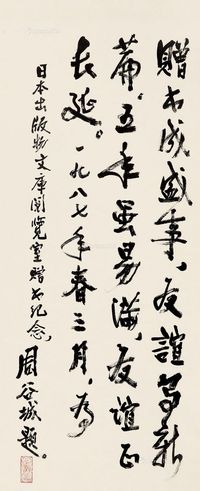 赠书成盛事、友谊写新
篇。五年虽易满、友谊正
长延。一九八七年春三月，为
日本出版物文库阅览室赠书纪念，
周谷城题。